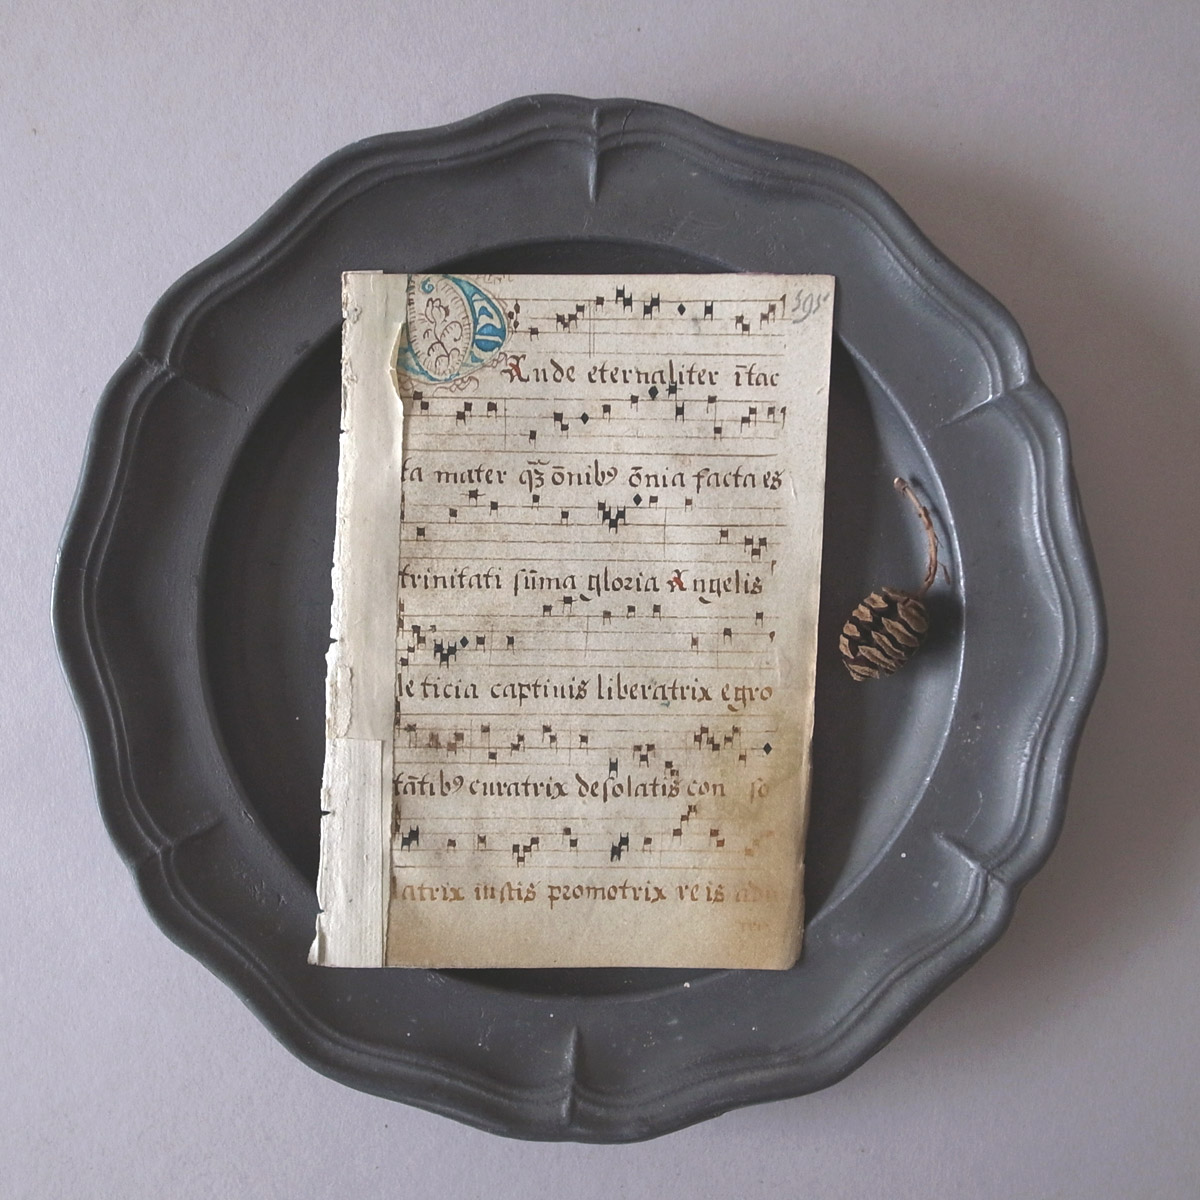 Gaude eternaliter ītac
ta mater qꝫ̄ ōnibꝰ ōnia facta es
trinitati sūma gloria Angelis
leticia captiuis liberatrix egro
tātibꝰ curatrix desolatis con so
latrix iustis promotrix reis adu